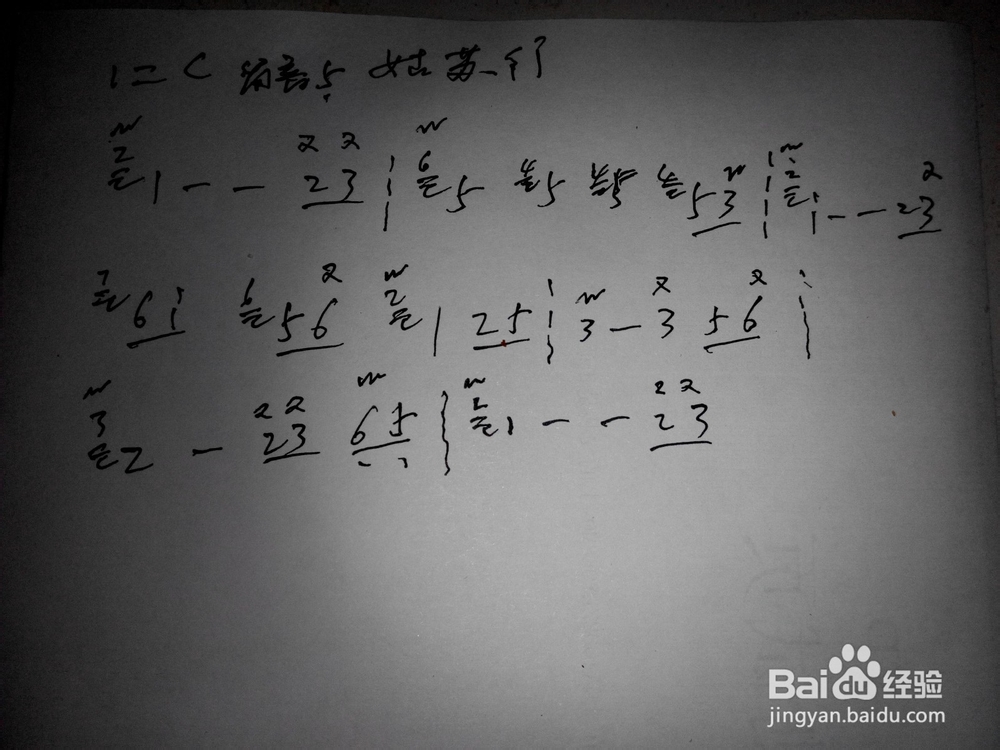 1=C 筒音5 姑苏行
2 1 - - 23 | 6 5 5 5 53 | 2 1 - - 23
7 61 6 56 2 1 25 | 3 - 3 56 |
3 2 - 23 65 | 2 1 - - 23
Baidu经验
jingyan.baidu.com